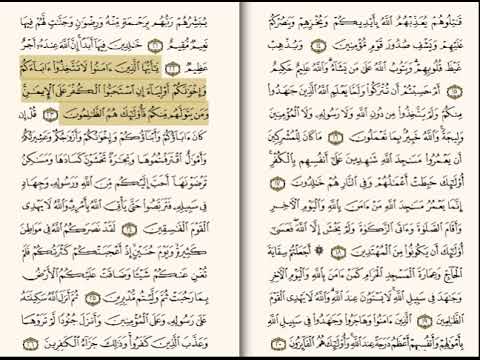 قَٰتِلُوهُمْ يُعَذِّبْهُمُ ٱللَّهُ بِأَيْدِيكُمْ وَيُخْزِهِمْ وَيَنصُرْكُمْ
عَلَيْهِمْ وَيَشْفِ صُدُورَ قَوْمٍ مُّؤْمِنِينَ ١٤ وَيُذْهِبْ
غَيْظَ قُلُوبِهِمْ وَيَتُوبُ ٱللَّهُ عَلَىٰ مَن يَشَآءُ وَٱللَّهُ عَلِيمٌ حَكِيمٌ
١٥ أَمْ حَسِبْتُمْ أَن تُتْرَكُوا۟ وَلَمَّا يَعْلَمِ ٱللَّهُ ٱلَّذِينَ جَٰهَدُوا۟
مِنكُمْ وَلَمْ يَتَّخِذُوا۟ مِن دُونِ ٱللَّهِ وَلَا رَسُولِهِۦ وَلَا ٱلْمُؤْمِنِينَ
وَلِيجَةً وَٱللَّهُ خَبِيرٌۢ بِمَا تَعْمَلُونَ ١٦ مَا كَانَ لِلْمُشْرِكِينَ
أَن يَعْمُرُوا۟ مَسَٰجِدَ ٱللَّهِ شَٰهِدِينَ عَلَىٰٓ أَنفُسِهِم بِٱلْكُفْرِ
أُو۟لَٰٓئِكَ حَبِطَتْ أَعْمَٰلُهُمْ وَفِى ٱلنَّارِ هُمْ خَٰلِدُونَ ١٧
إِنَّمَا يَعْمُرُ مَسَٰجِدَ ٱللَّهِ مَنْ ءَامَنَ بِٱللَّهِ وَٱلْيَوْمِ ٱلْءَاخِرِ
وَأَقَامَ ٱلصَّلَوٰةَ وَءَاتَى ٱلزَّكَوٰةَ وَلَمْ يَخْشَ إِلَّا ٱللَّهَ فَعَسَىٰٓ
أُو۟لَٰٓئِكَ أَن يَكُونُوا۟ مِنَ ٱلْمُهْتَدِينَ ١٨ أَجَعَلْتُمْ سِقَايَةَ
ٱلْحَآجِّ وَعِمَارَةَ ٱلْمَسْجِدِ ٱلْحَرَامِ كَمَنْ ءَامَنَ بِٱللَّهِ وَٱلْيَوْمِ ٱلْءَاخِرِ
وَجَٰهَدَ فِى سَبِيلِ ٱللَّهِ لَا يَسْتَوُۥنَ عِندَ ٱللَّهِ وَٱللَّهُ لَا يَهْدِى ٱلْقَوْمَ
ٱلظَّٰلِمِينَ ١٩ ٱلَّذِينَ ءَامَنُوا۟ وَهَاجَرُوا۟ وَجَٰهَدُوا۟ فِى سَبِيلِ ٱللَّهِ
بِأَمْوَٰلِهِمْ وَأَنفُسِهِمْ أَعْظَمُ دَرَجَةً عِندَ ٱللَّهِ وَأُو۟لَٰٓئِكَ هُمُ ٱلْفَآئِزُونَ ٢٠
يُبَشِّرُهُمْ رَبُّهُم بِرَحْمَةٍ مِّنْهُ وَرِضْوَٰنٍ وَجَنَّٰتٍ لَّهُمْ فِيهَا
نَعِيمٌ مُّقِيمٌ ٢١ خَٰلِدِينَ فِيهَآ أَبَدًا إِنَّ ٱللَّهَ عِندَهُۥٓ أَجْرٌ
عَظِيمٌ ٢٢ يَٰٓأَيُّهَا ٱلَّذِينَ ءَامَنُوا۟ لَا تَتَّخِذُوٓا۟ ءَابَآءَكُمْ
وَإِخْوَٰنَكُمْ أَوْلِيَآءَ إِنِ ٱسْتَحَبُّوا۟ ٱلْكُفْرَ عَلَى ٱلْإِيمَٰنِ
وَمَن يَتَوَلَّهُم مِّنكُمْ فَأُو۟لَٰٓئِكَ هُمُ ٱلظَّٰلِمُونَ ٢٣ قُلْ إِن
كَانَ ءَابَآؤُكُمْ وَأَبْنَآؤُكُمْ وَإِخْوَٰنُكُمْ وَأَزْوَٰجُكُمْ وَعَشِيرَتُكُمْ
وَأَمْوَٰلٌ ٱقْتَرَفْتُمُوهَا وَتِجَٰرَةٌ تَخْشَوْنَ كَسَادَهَا وَمَسَٰكِنُ
تَرْضَوْنَهَآ أَحَبَّ إِلَيْكُم مِّنَ ٱللَّهِ وَرَسُولِهِۦ وَجِهَادٍ
فِى سَبِيلِهِۦ فَتَرَبَّصُوا۟ حَتَّىٰ يَأْتِىَ ٱللَّهُ بِأَمْرِهِۦ وَٱللَّهُ لَا يَهْدِى
ٱلْقَوْمَ ٱلْفَٰسِقِينَ ٢٤ لَقَدْ نَصَرَكُمُ ٱللَّهُ فِى مَوَاطِنَ
كَثِيرَةٍ وَيَوْمَ حُنَيْنٍ إِذْ أَعْجَبَتْكُمْ كَثْرَتُكُمْ فَلَمْ
تُغْنِ عَنكُمْ شَيْـًٔا وَضَاقَتْ عَلَيْكُمُ ٱلْأَرْضُ
بِمَا رَحُبَتْ ثُمَّ وَلَّيْتُم مُّدْبِرِينَ ٢٥ ثُمَّ أَنزَلَ ٱللَّهُ سَكِينَتَهُۥ
عَلَىٰ رَسُولِهِۦ وَعَلَى ٱلْمُؤْمِنِينَ وَأَنزَلَ جُنُودًا لَّمْ تَرَوْهَا
وَعَذَّبَ ٱلَّذِينَ كَفَرُوا۟ وَذَٰلِكَ جَزَآءُ ٱلْكَٰفِرِينَ ٢٦